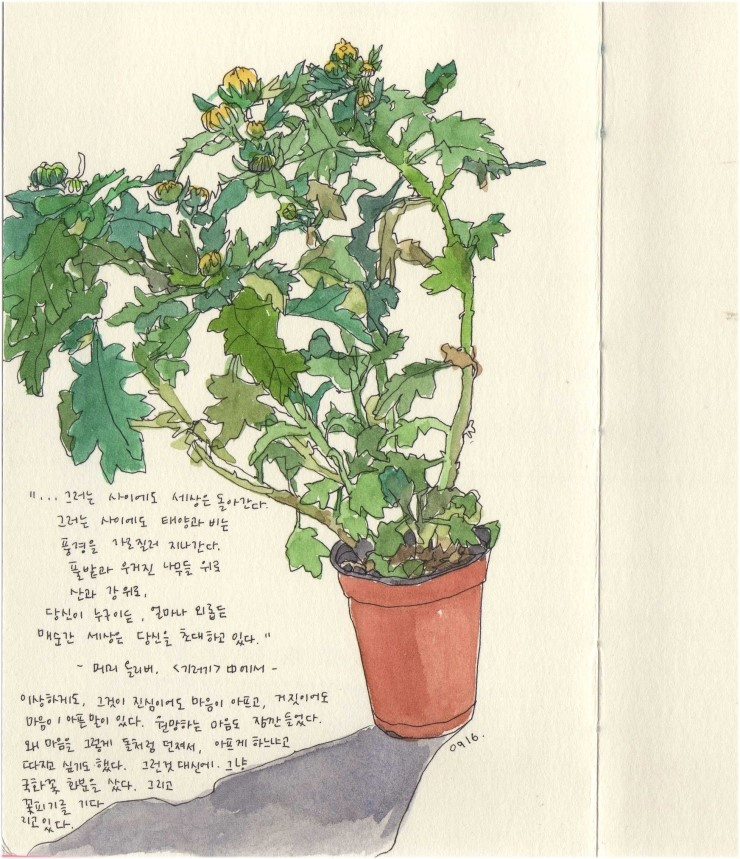 "... 그러는 사이에도 세상은 돌아간다.
그러는 사이에도 태양과 비는
풍경을 가로질러 지나간다.
풀밭과 우거진 나무들 위로
산과 강 위로.
당신이 누구이든, 얼마나 외롭든
매순간 세상은 당신을 초대하고 있다."
- 메리 올리버, <기러기> 中에서 -
이상하게도, 그것이 진심이어도 마음이 아프고, 거짓이어도
마음이 아픈 말이 있다. 원망하는 마음도 잠깐 들었다.
왜 마음을 그렇게 돌처럼 던져서, 아프게 하느냐고
따지고 싶기도 했다. 그런것 대신에. 그냥
국화꽃 화분을 샀다. 그리고
꽃피기를 기다
리고 있다.
0916.